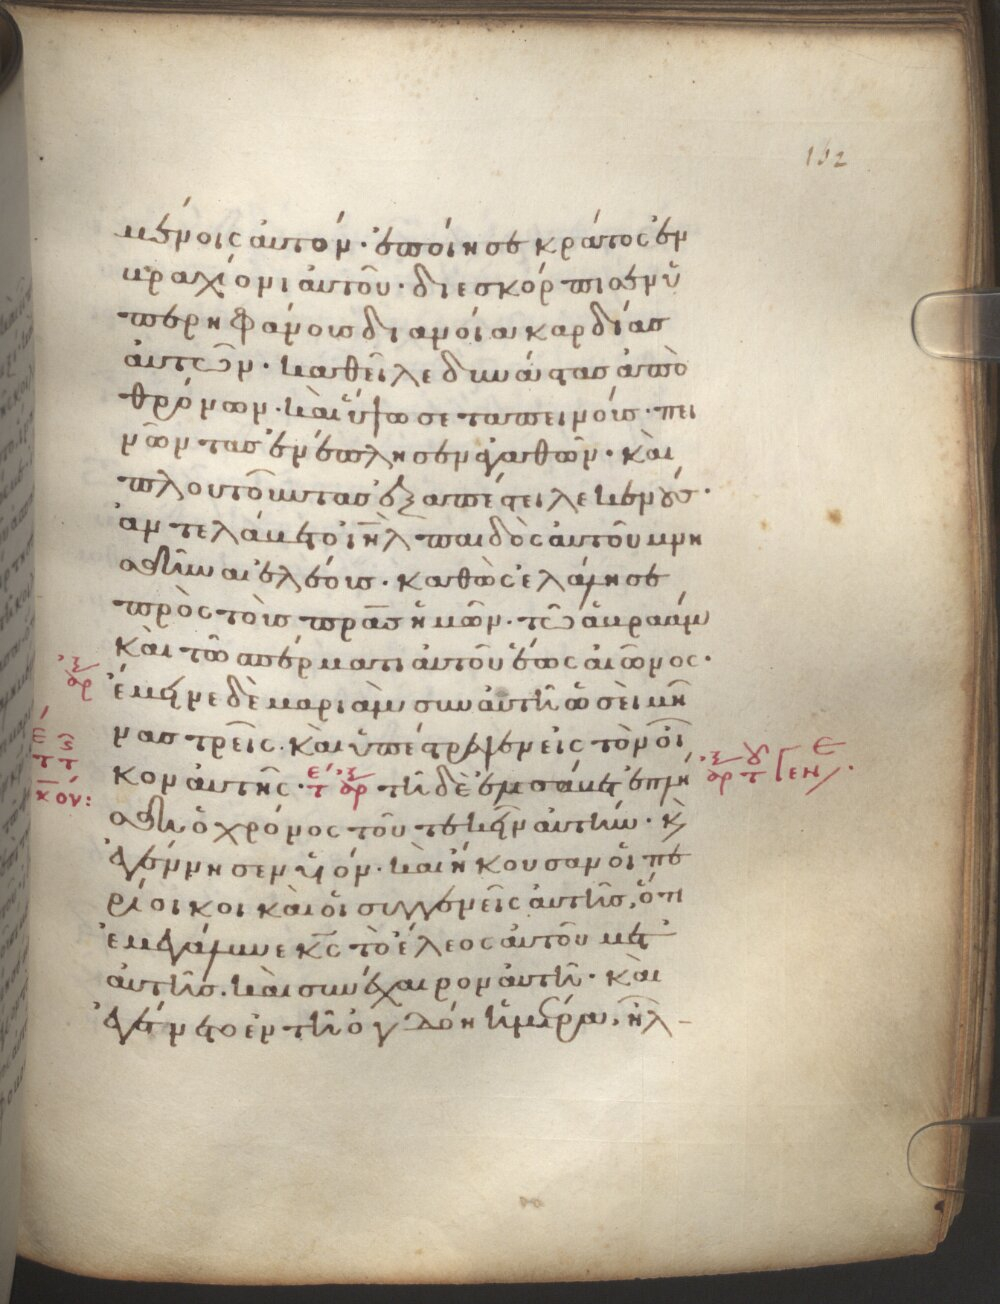 162
μένοις αὐτόν· ἐποίησε κράτος ἐν
βραχίονι αὐτοῦ· διεσκόρπισεν ὑ
περηφάνους διανοίαι καρδίας
αὐτῶν· καθεῖλε δυνάστας ἀπὸ
θρόνων· καὶ ὕψωσε ταπεινούς· πει
νῶντας ἐνέπλησεν ἀγαθῶν· καὶ
πλουτοῦντας ἐξαπέστειλε κενούς·
ἀντελάβετο ἰηλ παιδὸς αὐτοῦ μνη
σθῆναι ἐλέους· καθὼς ἐλάλησε
πρὸς τοὺς πρας ἡμῶν· τῶ ἀβραὰμ
καὶ τῶ σπέρματι αὐτοῦ ἕως αἰῶνος·
ἔμεινε δὲ μαριὰμ σὺν αὐτῆ ὡσεὶ μῆ
νας τρεῖς· καὶ ὑπέστρεψεν εἰς τὸν οἶ
κον αὐτῆς· τῆ δὲ ἐλισάβετ ἐπλή
σθη ὁ χρόνος τοῦ τεκεῖν αὐτήν· κ
ἐγέννησεν υἱόν· καὶ ἤκουσαν οἱ πε
ρίοικοι καὶ οἱ συγγενεῖς αὐτῆς, ὅτι
ἐμεγάλυνε κς τὸ ἔλεος αὐτοῦ μετ
αὐτῆς. καὶ συνέχαιρον αὐτῆ· καὶ
ἐγένετο ἐν τῆ ὀγδόη ἡμέρα, ἦλ